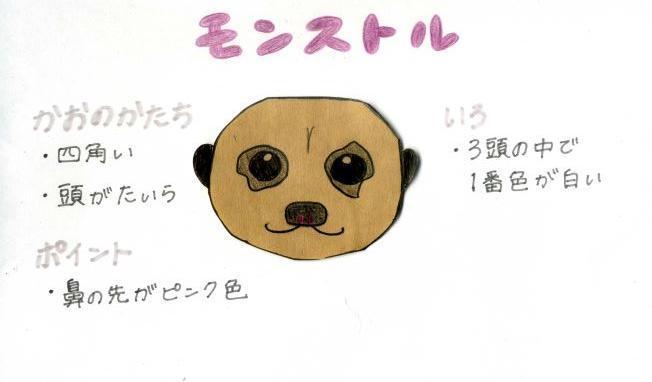 モンストル
かおのかたち
・四角い
・頭がたいら
ポイント
・鼻の先がピンク色
いろ
・3頭の中で
1番色が白い